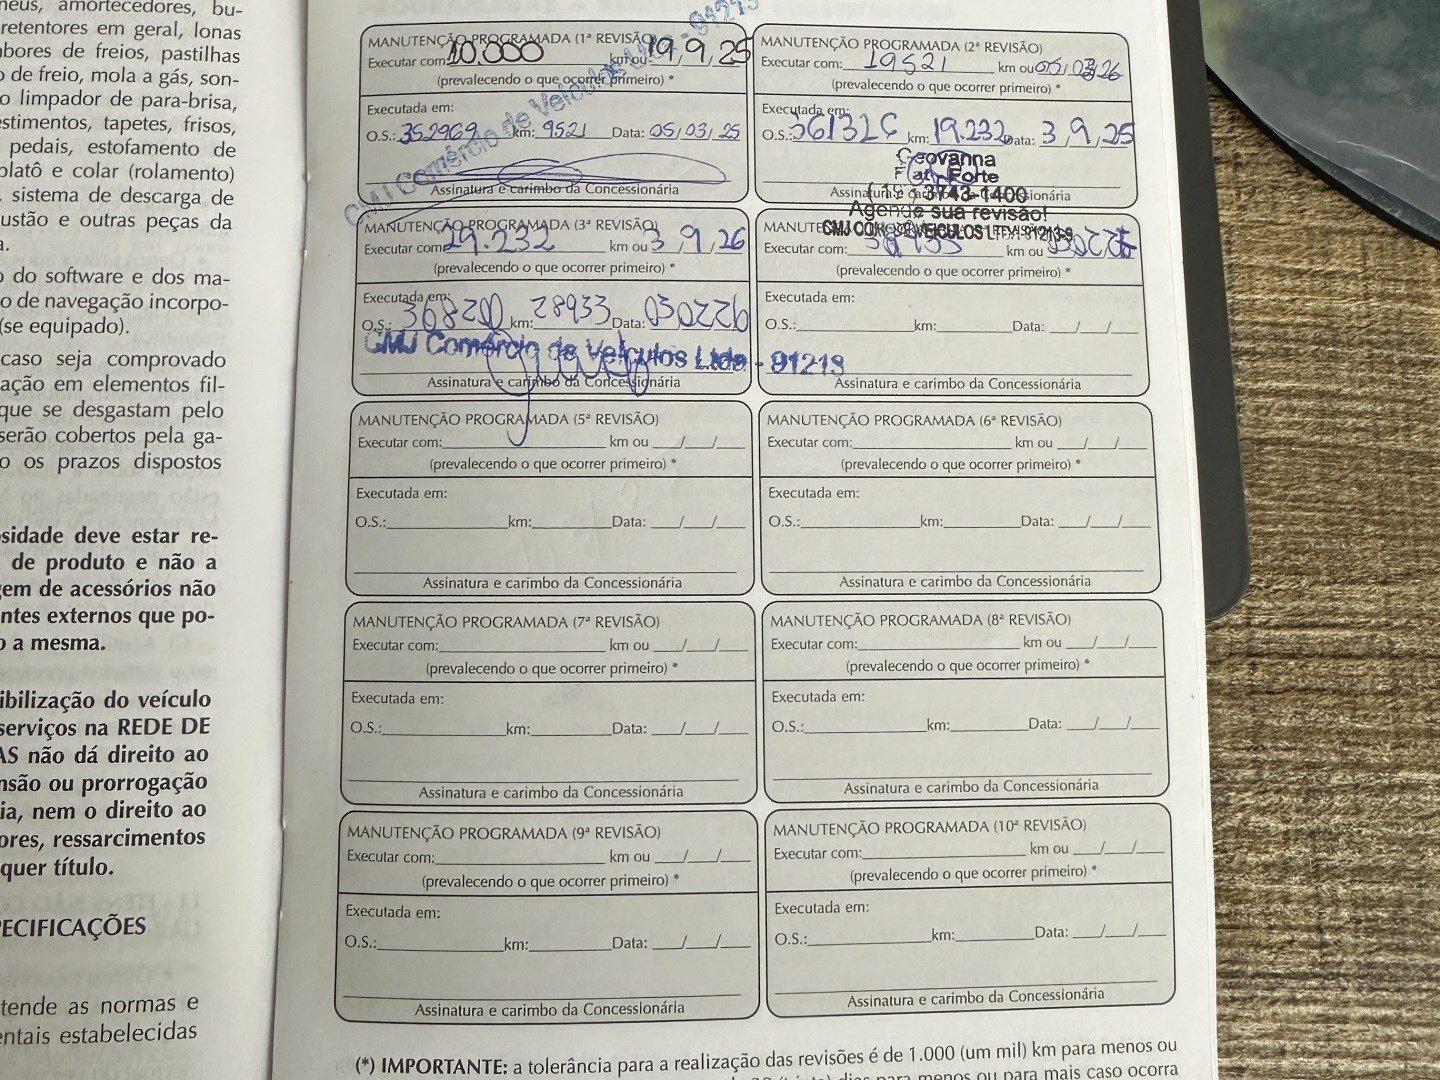 neus, amortecedores, bu-
retentores em geral, lonas
bores de freios, pastilhas
o de freio, mola a gás, son-
o limpador de para-brisa,
estimentos, tapetes, frisos,
pedais, estofamento de
platô e colar (rolamento)
sistema de descarga de
ustão e outras peças da
a.
o do software e dos ma-
o de navegação incorpo-
(se equipado).
caso seja comprovado
ação em elementos fil-
que se desgastam pelo
serão cobertos pela ga-
o os prazos dispostos
sidade deve estar re-
de produto e não a
gem de acessórios não
entes externos que po-
o a mesma.
ibilização do veículo
serviços na REDE DE
AS não dá direito ao
nsão ou prorrogação
ia, nem o direito ao
ores, ressarcimentos
quer título.
PECIFICAÇÕES
tende as normas e
entais estabelecidas
MANUTENÇÃO PROGRAMADA (1ª REVISÃO)
Executar com: 10.000 km ou 19/9/25
(prevalecendo o que ocorrer primeiro) *
Executada em:
O.S.: 352969 km: 9521 Data: 05/03/25
CMJ Comércio de Veículos Ltda - 91213
Assinatura e carimbo da Concessionária
MANUTENÇÃO PROGRAMADA (2ª REVISÃO)
Executar com: 19521 km ou 05/03/26
(prevalecendo o que ocorrer primeiro) *
Executada em:
O.S.: 361326 km: 19.232 Data: 3/9/25
Geovanna
Fiat Forte
3743-1400
Assinatura e carimbo da Concessionária
Agende sua revisão!
MANUTENÇÃO PROGRAMADA (3ª REVISÃO)
Executar com: 29.232 km ou 3/9/26
(prevalecendo o que ocorrer primeiro) *
Executada em:
O.S.: 368200 km: 28933 Data: 030226
CMJ Comércio de Veículos Ltda - 91213
Assinatura e carimbo da Concessionária
Executar com: 38933 km ou
(prevalecendo o que ocorrer primeiro) *
Executada em:
O.S.: km: Data: / /
Assinatura e carimbo da Concessionária
MANUTENÇÃO PROGRAMADA (5ª REVISÃO)
Executar com: km ou / /
(prevalecendo o que ocorrer primeiro) *
Executada em:
O.S.: km: Data: / /
Assinatura e carimbo da Concessionária
MANUTENÇÃO PROGRAMADA (6ª REVISÃO)
Executar com: km ou / /
(prevalecendo o que ocorrer primeiro) *
Executada em:
O.S.: km: Data: / /
Assinatura e carimbo da Concessionária
MANUTENÇÃO PROGRAMADA (7ª REVISÃO)
Executar com: km ou / /
(prevalecendo o que ocorrer primeiro) *
Executada em:
O.S.: km: Data: / /
Assinatura e carimbo da Concessionária
MANUTENÇÃO PROGRAMADA (8ª REVISÃO)
Executar com: km ou / /
(prevalecendo o que ocorrer primeiro) *
Executada em:
O.S.: km: Data: / /
Assinatura e carimbo da Concessionária
MANUTENÇÃO PROGRAMADA (9ª REVISÃO)
Executar com: km ou / /
(prevalecendo o que ocorrer primeiro) *
Executada em:
O.S.: km: Data: / /
Assinatura e carimbo da Concessionária
MANUTENÇÃO PROGRAMADA (10ª REVISÃO)
Executar com: km ou / /
(prevalecendo o que ocorrer primeiro) *
Executada em:
O.S.: km: Data: / /
Assinatura e carimbo da Concessionária
(*) IMPORTANTE: a tolerância para a realização das revisões é de 1.000 (um mil) km para menos ou
dias para menos ou para mais caso ocorra